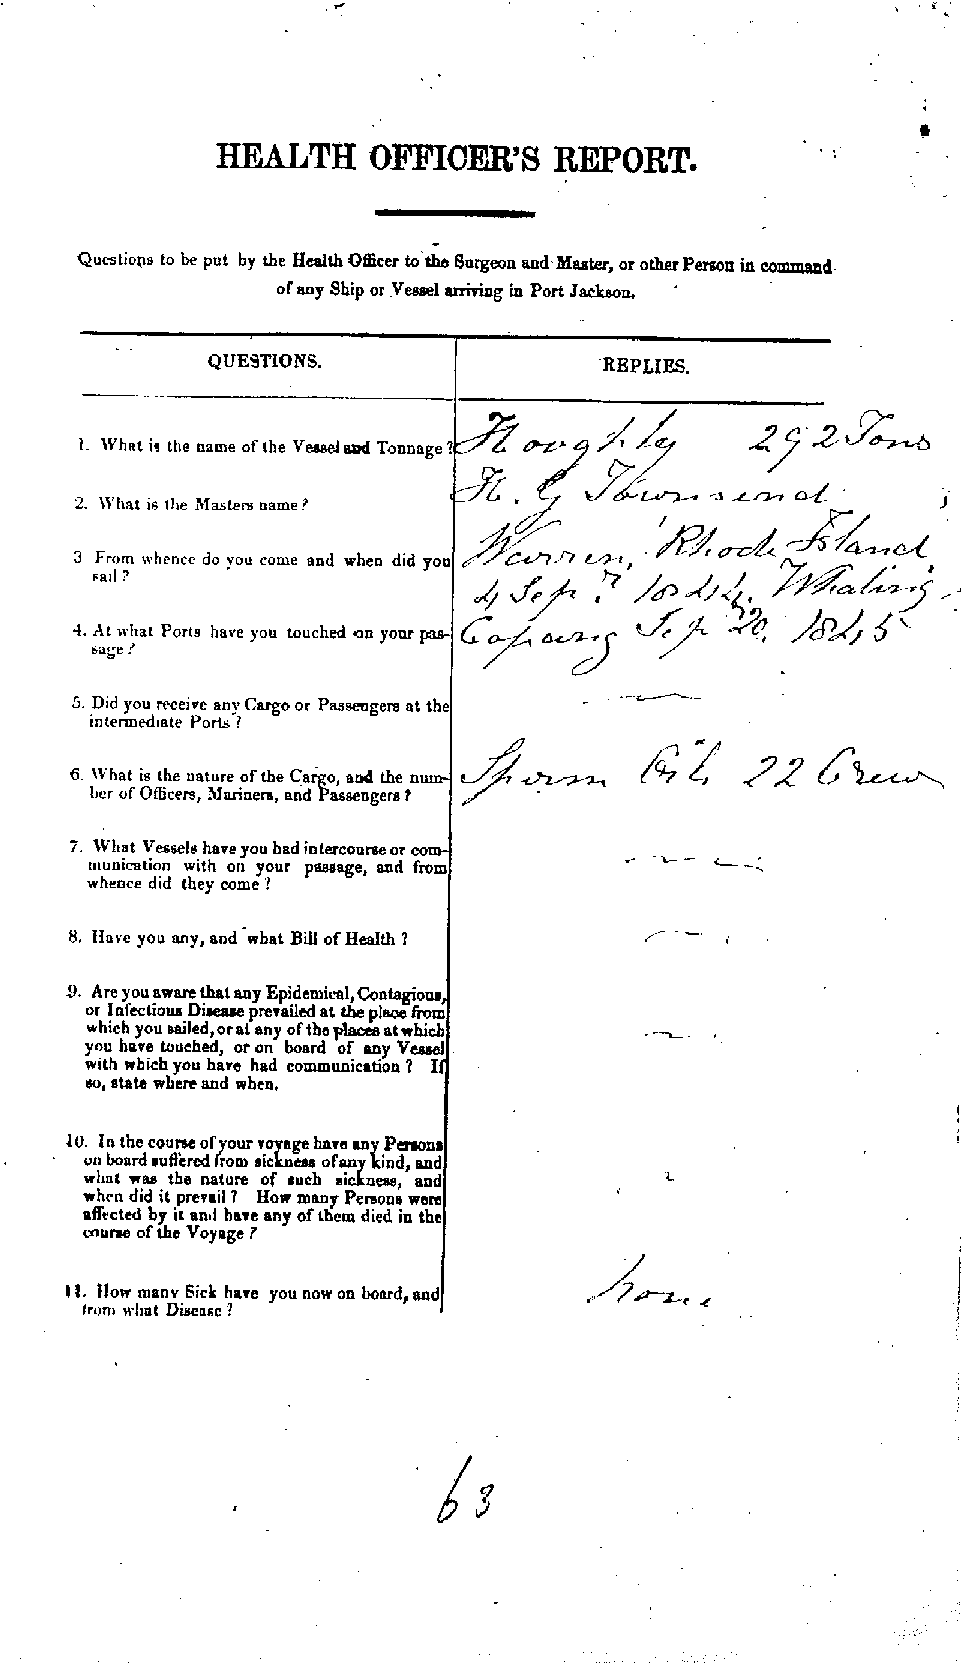 HEALTH OFFICER'S REPORT.
Questions to be put by the Health Officer to the Surgeon and Master, or other Person in command
of any Ship or Vessel arriving in Port Jackson.
QUESTIONS.
REPLIES.
1. What is the name of the Vessel and Tonnage?
Hooghly 292 Tons
2. What is the Masters name?
H. G Townsend
3 From whence do you come and when did you
sail?
Warren, Rhode Island,
4 Sep. 1844. Whaling
4. At what Ports have you touched on your pas-
sage?
Copang Sep 20. 1845
5. Did you receive any Cargo or Passengers at the
intermediate Ports?
6. What is the nature of the Cargo, and the num-
ber of Officers, Mariners, and Passengers?
Sperm Oil 22 Crew
7. What Vessels have you had intercourse or com-
munication with on your passage, and from
whence did they come?
8. Have you any, and what Bill of Health?
9. Are you aware that any Epidemical, Contagious,
or Infectious Disease prevailed at the place from
which you sailed, or at any of the places at which
you have touched, or on board of any Vessel
with which you have had communication? If
so, state where and when.
10. In the course of your voyage have any Persons
on board suffered from sickness of any kind, and
what was the nature of such sickness, and
when did it prevail? How many Persons were
affected by it and have any of them died in the
course of the Voyage?
11. How many Sick have you now on board, and
from what Disease?
none
63